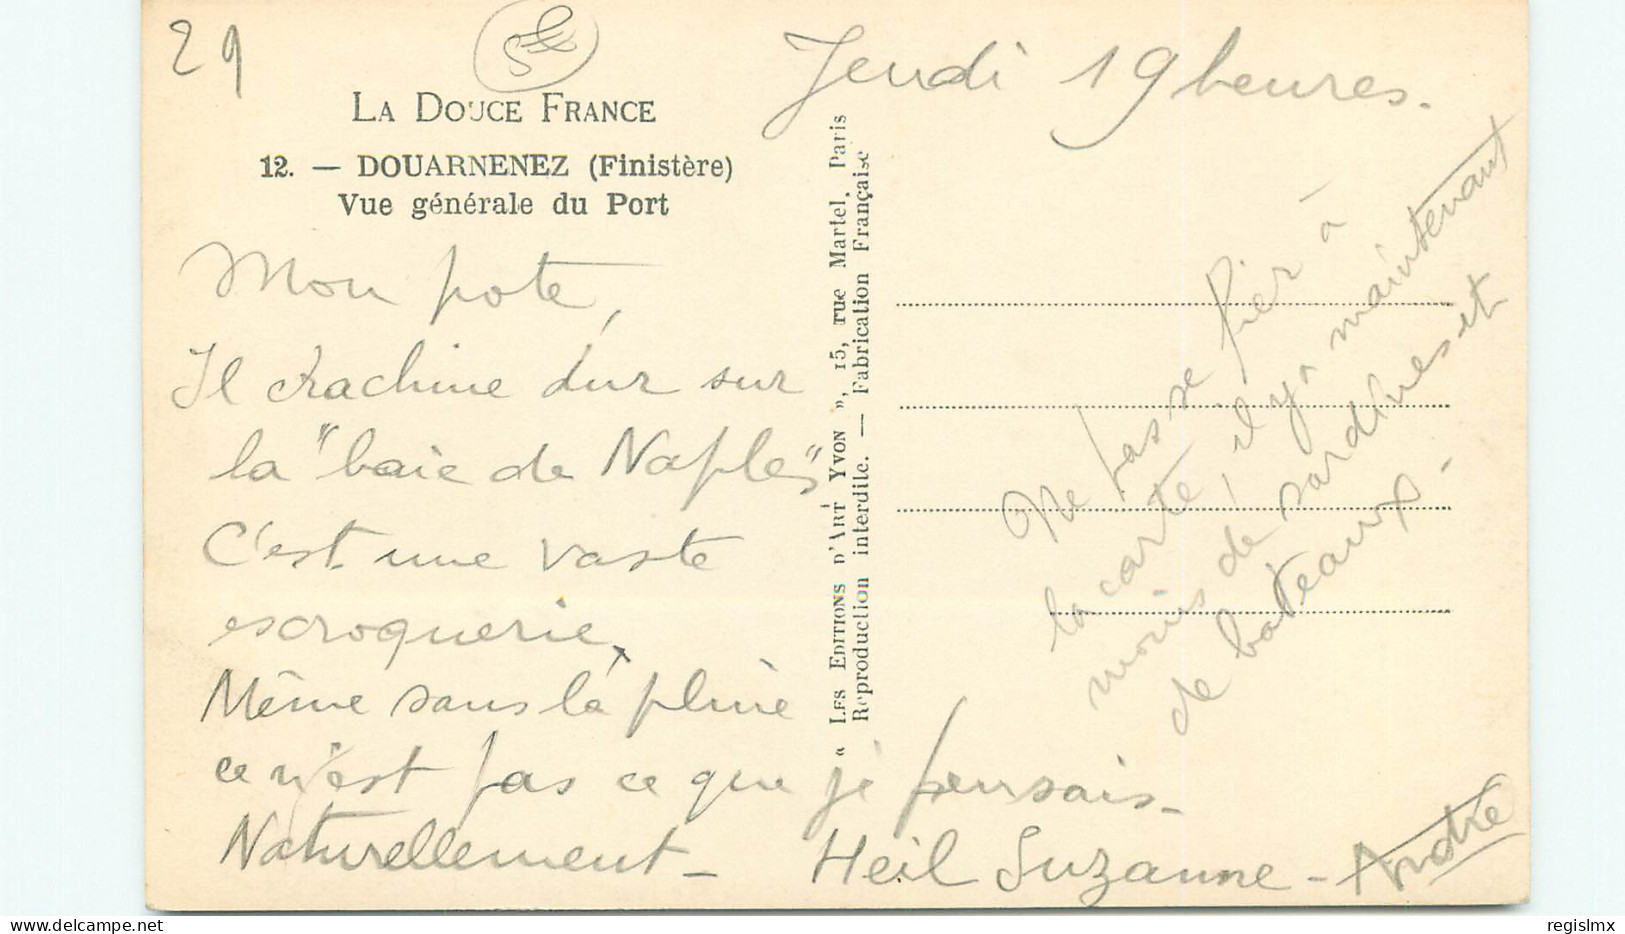 29
LA DOUCE FRANCE
12. — DOUARNENEZ (Finistère)
Vue générale du Port
Jeudi 19 heures.
Mon pote,
Il crachine dur sur
la "baie de Naples"
C'est une vaste
escroquerie,
Même sans la pluie
ce n'est pas ce que je pensais –
Naturellement – Heil Suzanne – André
« LES EDITIONS D'ART YVON », 15, rue Martel, Paris
Reproduction interdite. — Fabrication Française
Ne pas se fier à
la carte, il y a maintenant
moins de sardines et
de bateaux –
regislmx